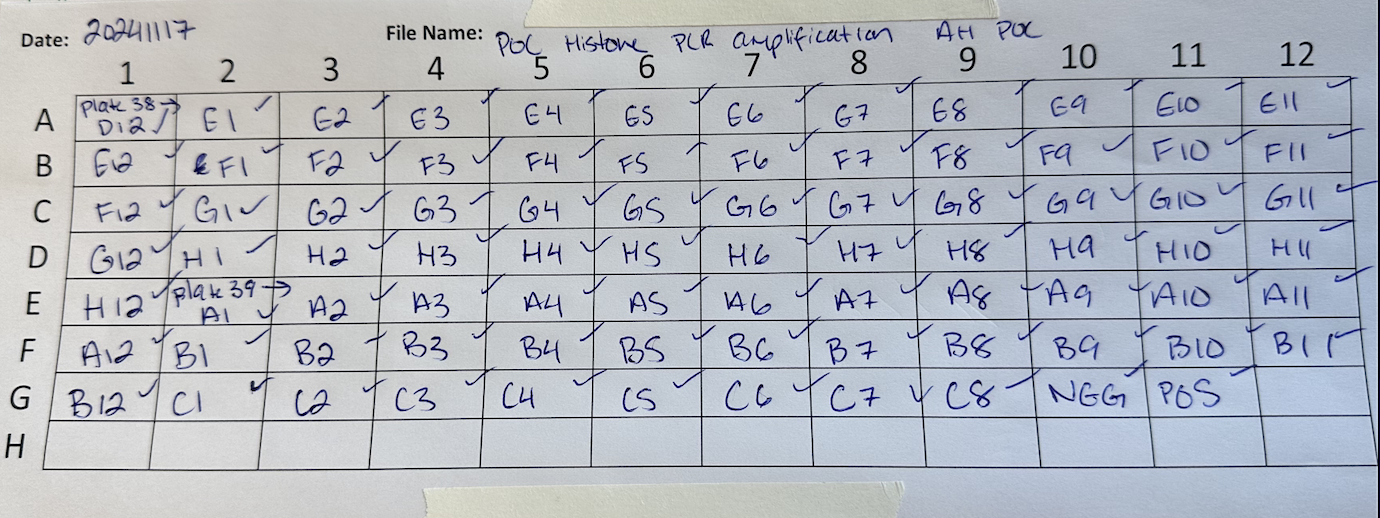 Date: 20241117 File Name: POC Histone PCR amplification AH POC
1 2 3 4 5 6 7 8 9 10 11 12
A plate 38 → D12 ✓ E1 ✓ E2 ✓ E3 ✓ E4 ✓ E5 ✓ E6 ✓ E7 ✓ E8 ✓ E9 ✓ E10 ✓ E11 ✓
B E12 ✓ F1 ✓ F2 ✓ F3 ✓ F4 ✓ F5 ✓ F6 ✓ F7 ✓ F8 ✓ F9 ✓ F10 ✓ F11 ✓
C F12 ✓ G1 ✓ G2 ✓ G3 ✓ G4 ✓ G5 ✓ G6 ✓ G7 ✓ G8 ✓ G9 ✓ G10 ✓ G11 ✓
D G12 ✓ H1 ✓ H2 ✓ H3 ✓ H4 ✓ H5 ✓ H6 ✓ H7 ✓ H8 ✓ H9 ✓ H10 ✓ H11 ✓
E H12 ✓ plate 39 → A1 ✓ A2 ✓ A3 ✓ A4 ✓ A5 ✓ A6 ✓ A7 ✓ A8 ✓ A9 ✓ A10 ✓ A11 ✓
F A12 ✓ B1 ✓ B2 ✓ B3 ✓ B4 ✓ B5 ✓ B6 ✓ B7 ✓ B8 ✓ B9 ✓ B10 ✓ B11 ✓
G B12 ✓ C1 ✓ C2 ✓ C3 ✓ C4 ✓ C5 ✓ C6 ✓ C7 ✓ C8 ✓ NEG ✓ POS ✓
H